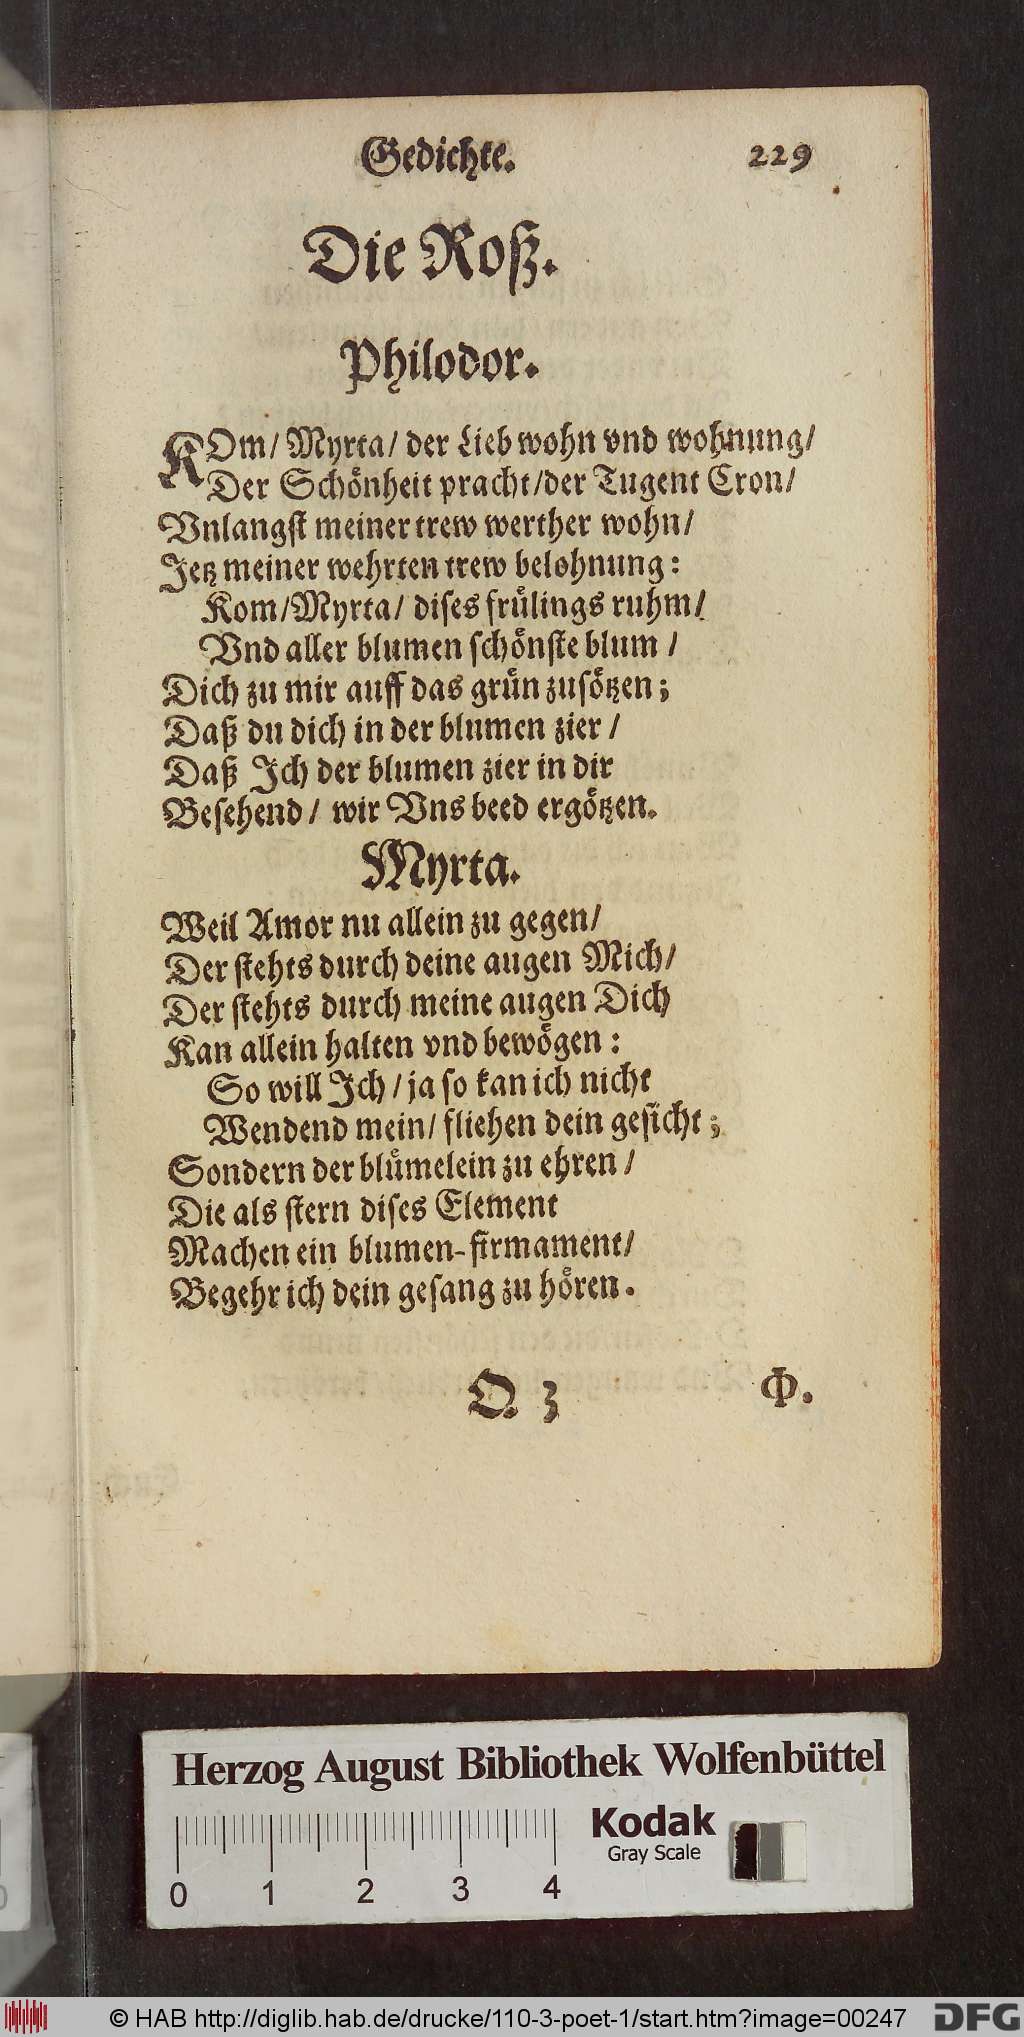 Gedichte. 229
Die Roß.
Philodor.
KOm/ Myrta/ der Lieb wohn vnd wohnung/
Der Schönheit pracht/der Tugent Cron/
Vnlangst meiner trew werther wohn/
Jetz meiner wehrten trew belohnung:
Kom/Myrta/ dises frülings ruhm/
Vnd aller blumen schönste blum /
Dich zu mir auff das grün zusötzen;
Daß du dich in der blumen zier /
Daß Jch der blumen zier in dir
Besehend/ wir Vns beed ergötzen.
Myrta.
Weil Amor nu allein zu gegen/
Der stehts durch deine augen Mich/
Der stehts durch meine augen Dich
Kan allein halten vnd bewögen:
So will Jch/ ja so kan ich nicht
Wendend mein/ fliehen dein gesicht;
Sondern der blümelein zu ehren/
Die als stern dises Element
Machen ein blumen-firmament/
Begehr ich dein gesang zu hören.
Q 3 Φ.
Herzog August Bibliothek Wolfenbüttel
Kodak
Gray Scale
0 1 2 3 4
© HAB http://diglib.hab.de/drucke/110-3-poet-1/start.htm?image=00247 DFG